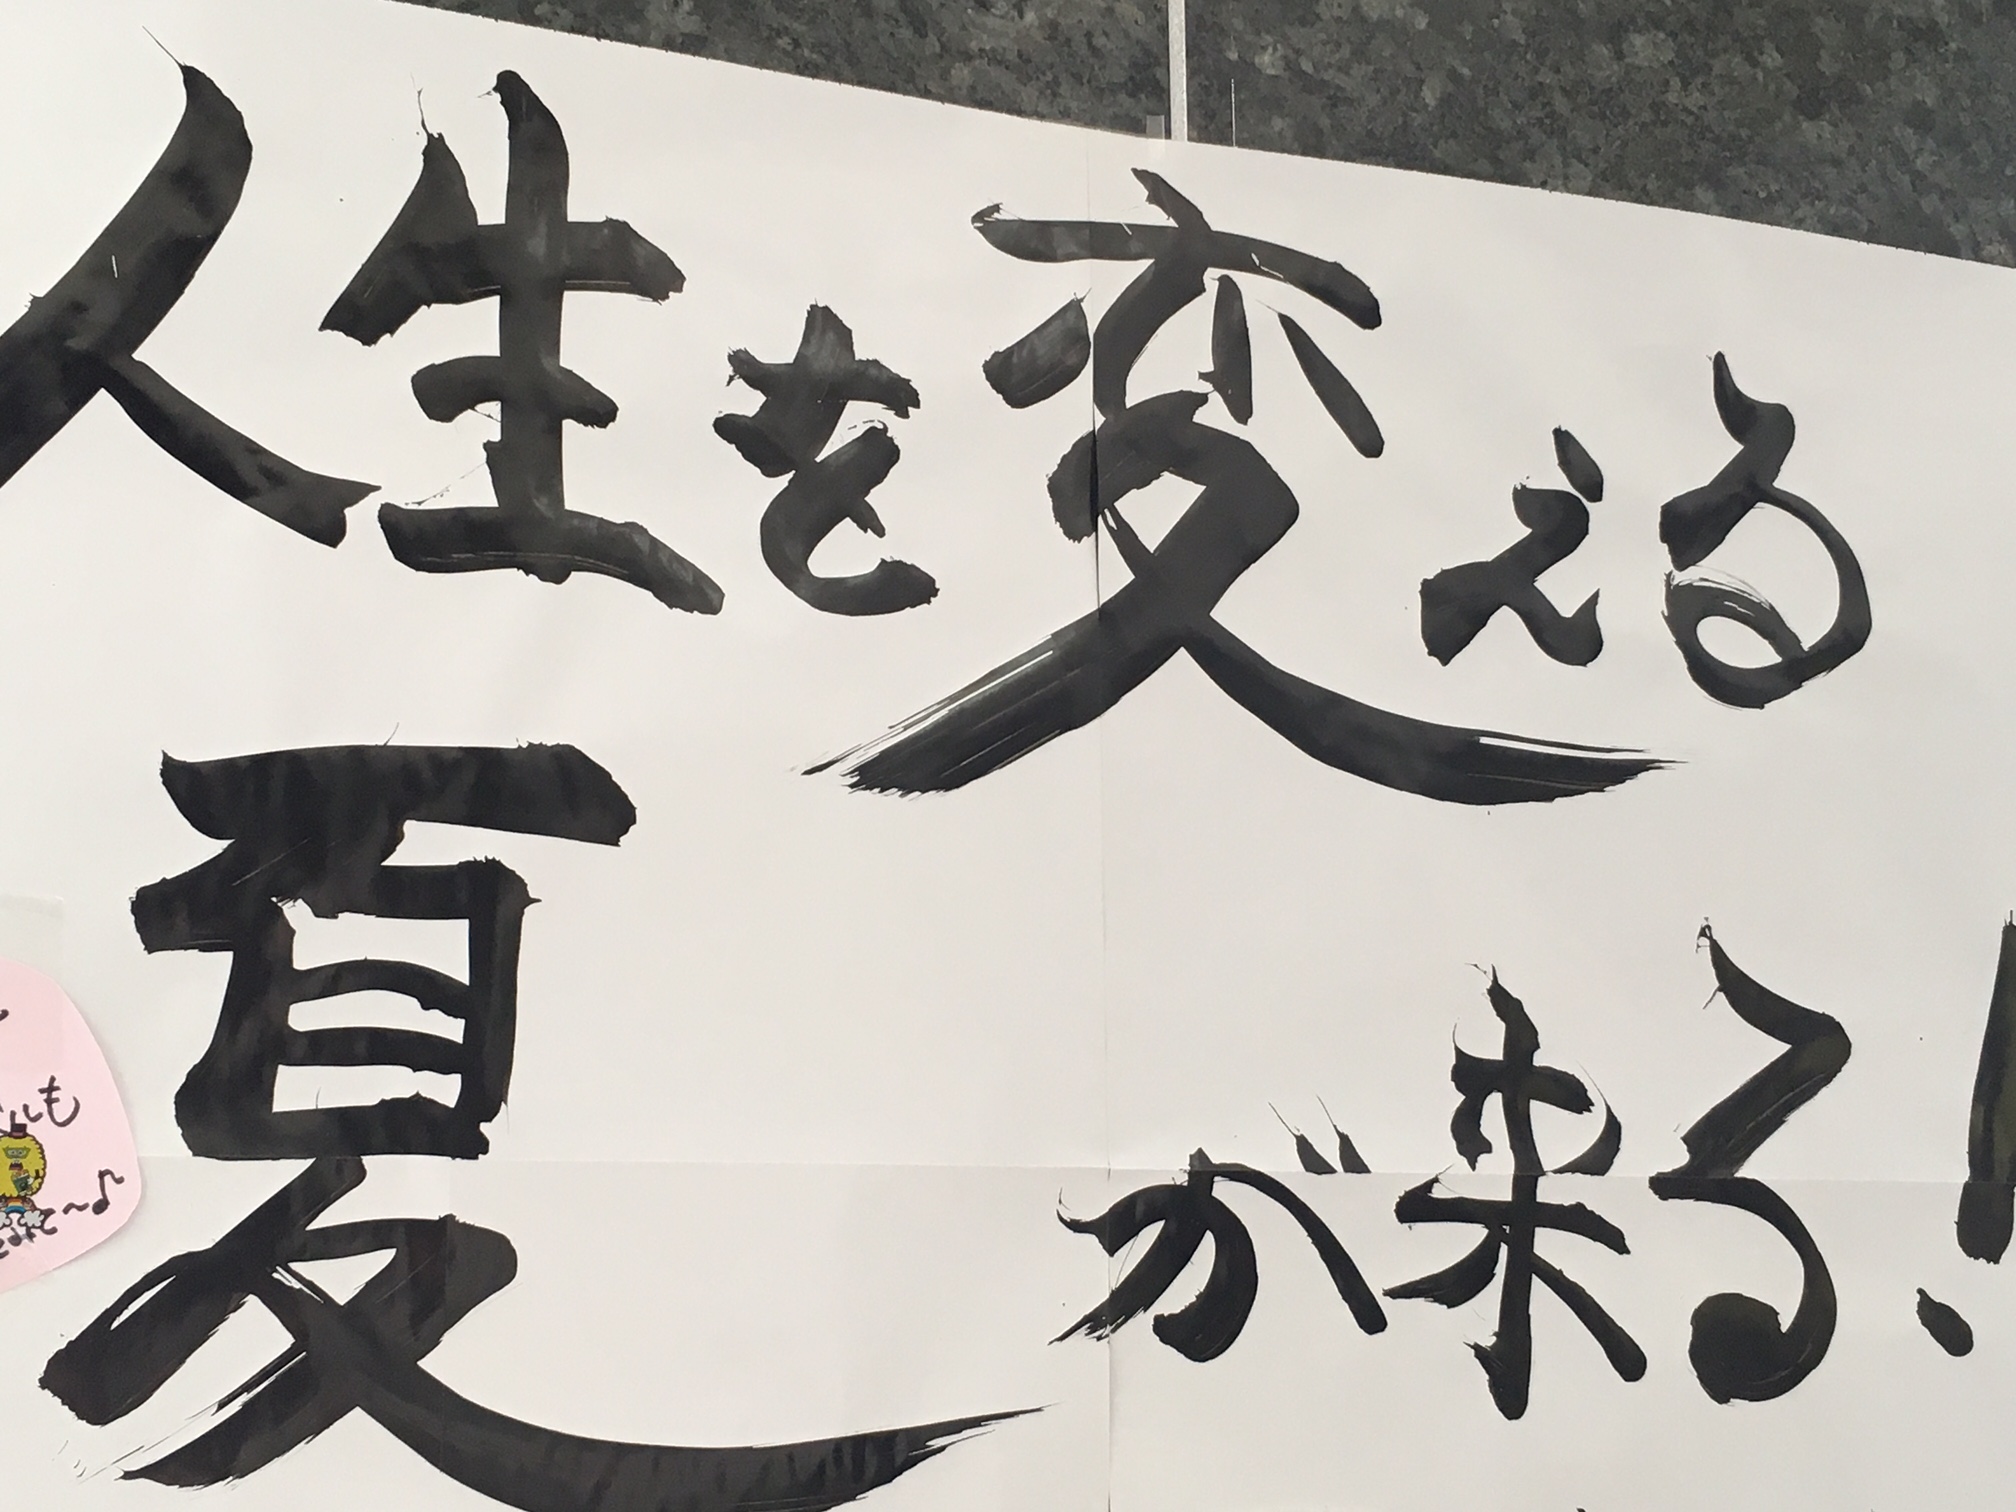 人生を変える
夏が来る!
も